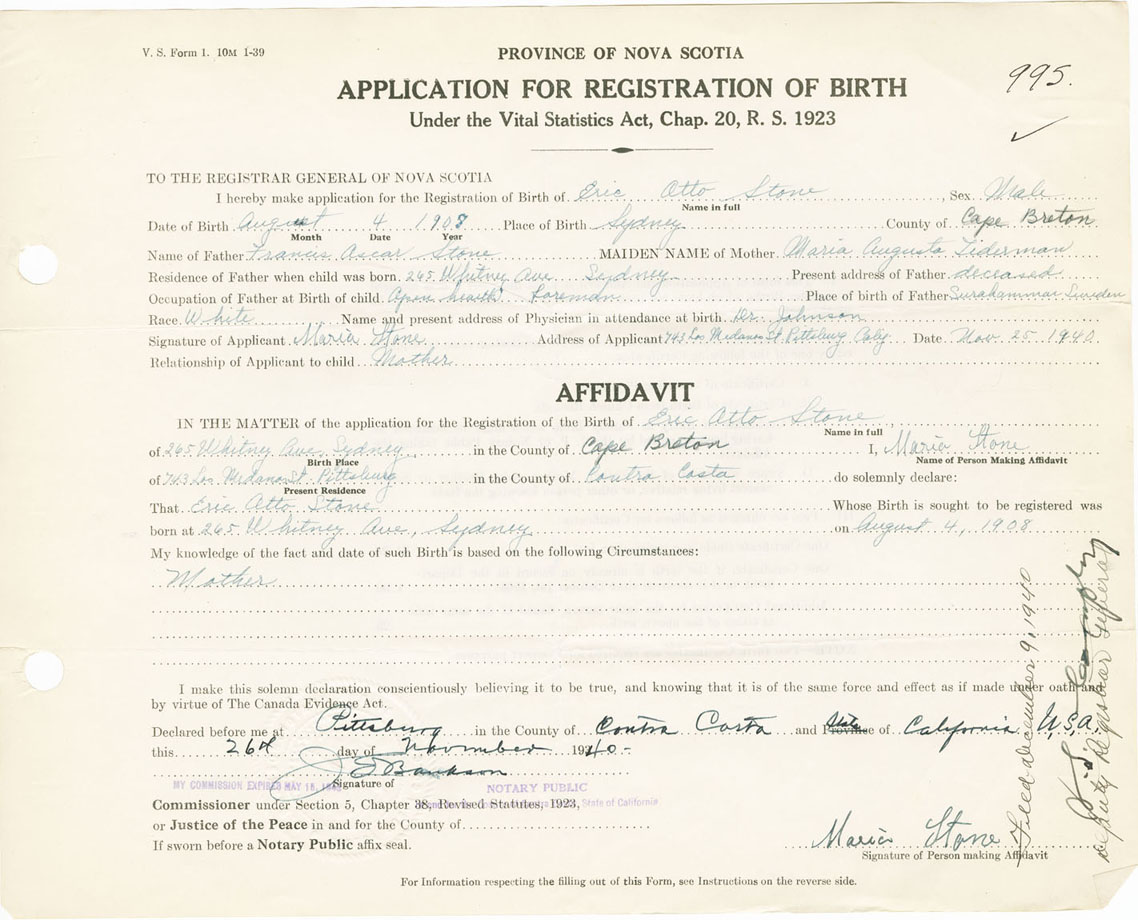 V. S. Form 1. 10M 1-39
PROVINCE OF NOVA SCOTIA
995.
APPLICATION FOR REGISTRATION OF BIRTH
Under the Vital Statistics Act, Chap. 20, R. S. 1923
TO THE REGISTRAR GENERAL OF NOVA SCOTIA
I hereby make application for the Registration of Birth of Eric Otto Stone, Sex Male
Name in full
Date of Birth August 4 1908 Place of Birth Sydney County of Cape Breton
Month Date Year
Name of Father Francis Oscar Stone MAIDEN NAME of Mother Maria Augusta Tiderman
Residence of Father when child was born 265 Whitney Ave Sydney Present address of Father deceased
Occupation of Father at Birth of child Open hearth Foreman Place of birth of Father Surahammar Sweden
Race White Name and present address of Physician in attendance at birth Dr. Johnson
Signature of Applicant Maria Stone Address of Applicant 743 Los Medanos St Pittsburg Date Nov. 25 1940
Relationship of Applicant to child Mother
AFFIDAVIT
IN THE MATTER of the application for the Registration of the Birth of Eric Otto Stone,
Name in full
of 265 Whitney Ave, Sydney, in the County of Cape Breton I, Maria Stone
Birth Place Name of Person Making Affidavit
of 743 Los Medanos St. Pittsburg in the County of Contra Costa do solemnly declare:
Present Residence
That Eric Otto Stone Whose Birth is sought to be registered was
born at 265 Whitney Ave, Sydney on August 4, 1908
My knowledge of the fact and date of such Birth is based on the following Circumstances:
Mother
I make this solemn declaration conscientiously believing it to be true, and knowing that it is of the same force and effect as if made under oath and
by virtue of The Canada Evidence Act.
Declared before me at Pittsburg in the County of Contra Costa and State Province of California U.S.A.
this 26th day of November 1940-
J E Bankson
MY COMMISSION EXPIRES MAY 18, Signature of NOTARY PUBLIC
Commissioner under Section 5, Chapter 38, Revised Statutes, 1923, State of California
or Justice of the Peace in and for the County of
If sworn before a Notary Public affix seal.
Maria Stone
Signature of Person making Affidavit
For Information respecting the filling out of this Form, see Instructions on the reverse side.
Filed december 9, 1940
deputy Registrar General